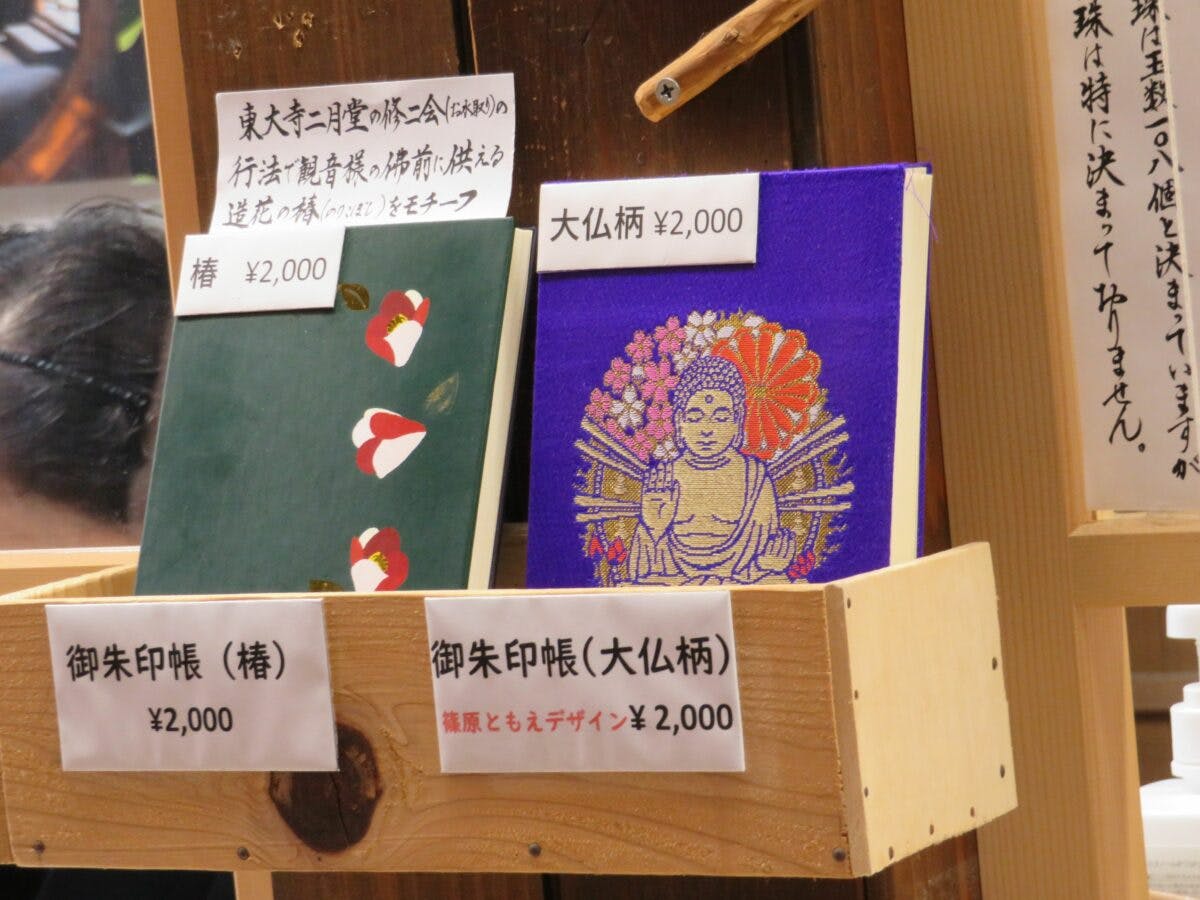 東大寺二月堂の修二会(お水取り)の
行法で観音様の佛前に供える
造花の椿(のりこぼし)をモチーフ
椿 ¥2,000
大仏柄 ¥2,000
御朱印帳(椿)
¥2,000
御朱印帳(大仏柄)
篠原ともえデザイン¥2,000
珠は玉数一〇八個と決まっていますが
珠は特に決まっておりません。